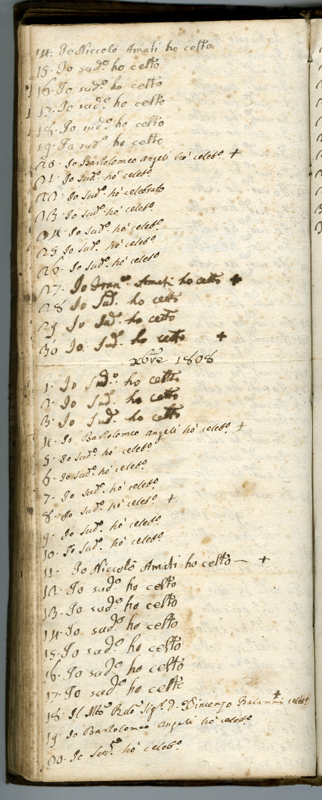 14. Io Niccolò Amati ho celto
15. Io sud.º ho celto
16. Io sud.º ho celto
17. Io sud.º ho celto
18. Io sud.º ho celto
19. Io sud.º ho celto
20. Io Bartolomeo Angeli hò celeb.º +
21. Io Sud.º hò celeb.º
22. Io Sud.º hò celebrato
23. Io Sud.º hò celeb.º
24. Io Sud.º hò celeb.º
25. Io Sud.º hò celeb.º
26. Io Sud.º hò celeb.º
27. Io Fran.co Amati ho celto +
28. Io Sud.º ho celto
29. Io Sud.º ho celto
30. Io Sud.º ho celto +
Xbre 1808
1. Io Sud.º ho celto
2. Io Sud.º ho celto
3. Io Sud.º ho celto
4. Io Bartolomeo Angeli hò celeb.º +
5. Io Sud.º hò celeb.º
6. Io Sud.º hò celeb.º
7. Io Sud.º hò celeb.º
8. Io Sud.º hò celeb.º +
9. Io Sud.º hò celeb.º
10. Io Sud.º hò celeb.º
11. Io Niccolò Amati ho celto +
12. Io sud.º ho celto
13. Io sud.º ho celto
14. Io sud.º ho celto
15. Io sud.º ho celto
16. Io sud.º ho celto
17. Io sud.º ho celto
18. Il Mto Rdo Sig.r D. Vincenzo celeb.º +
19. Io Bartolomeo Angeli hò celeb.º
20. Io Sud.º hò celeb.º